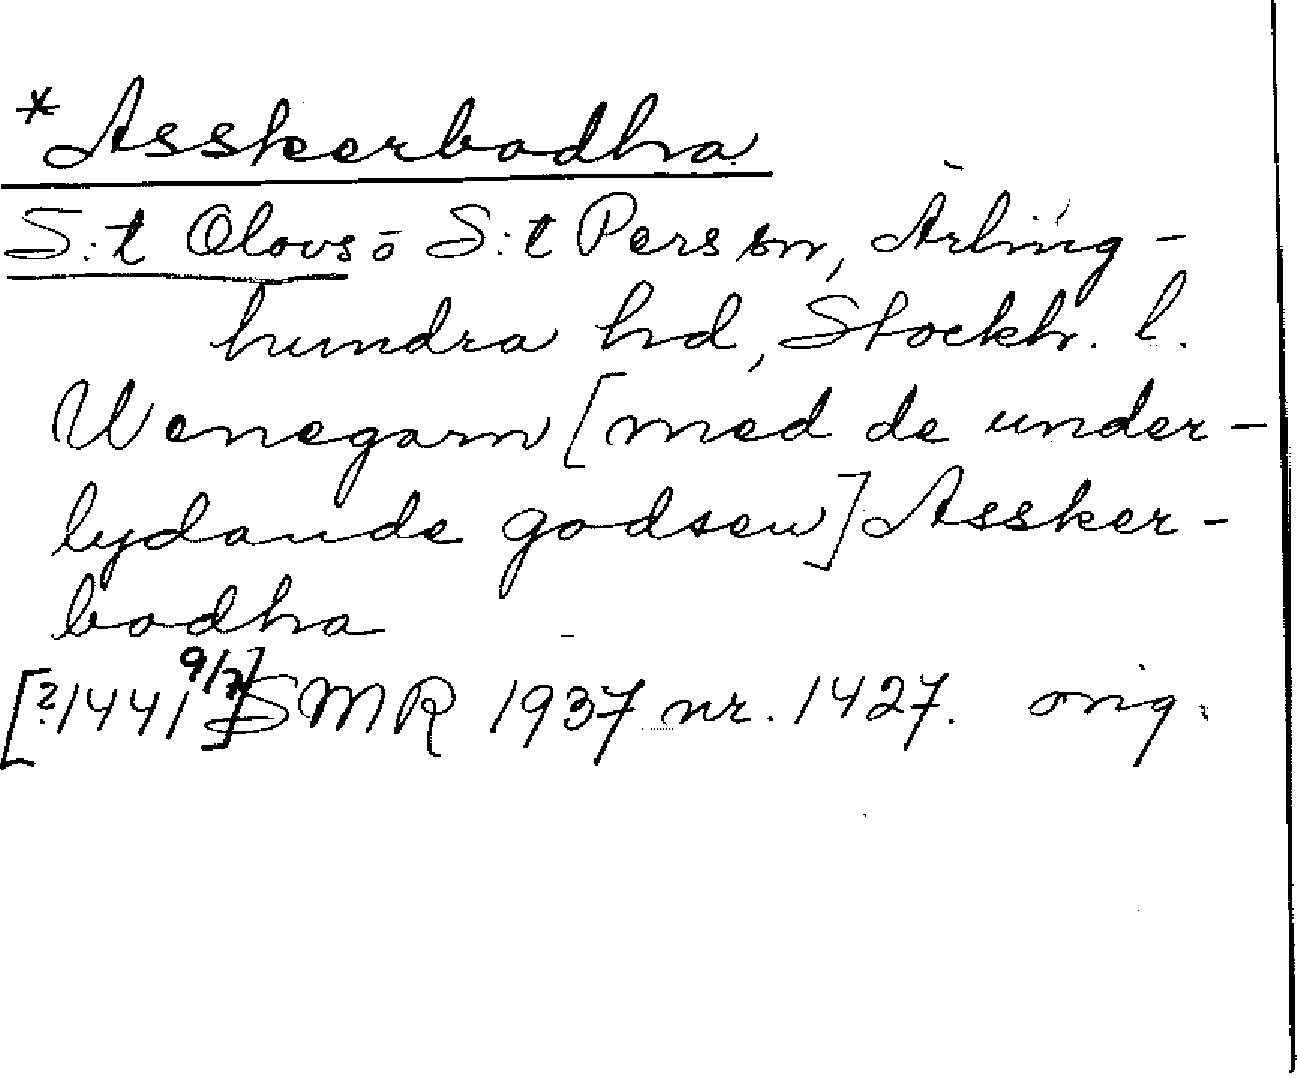 *Asskerbodha
S:t Olovs ō S:t Pers sn, Ärling-
hundra hd, Stockh. l.
Wenegarn [med de under-
lydande godsen] Assker-
bodha
[?1441 9/7] SMR 1937 nr. 1427. orig.